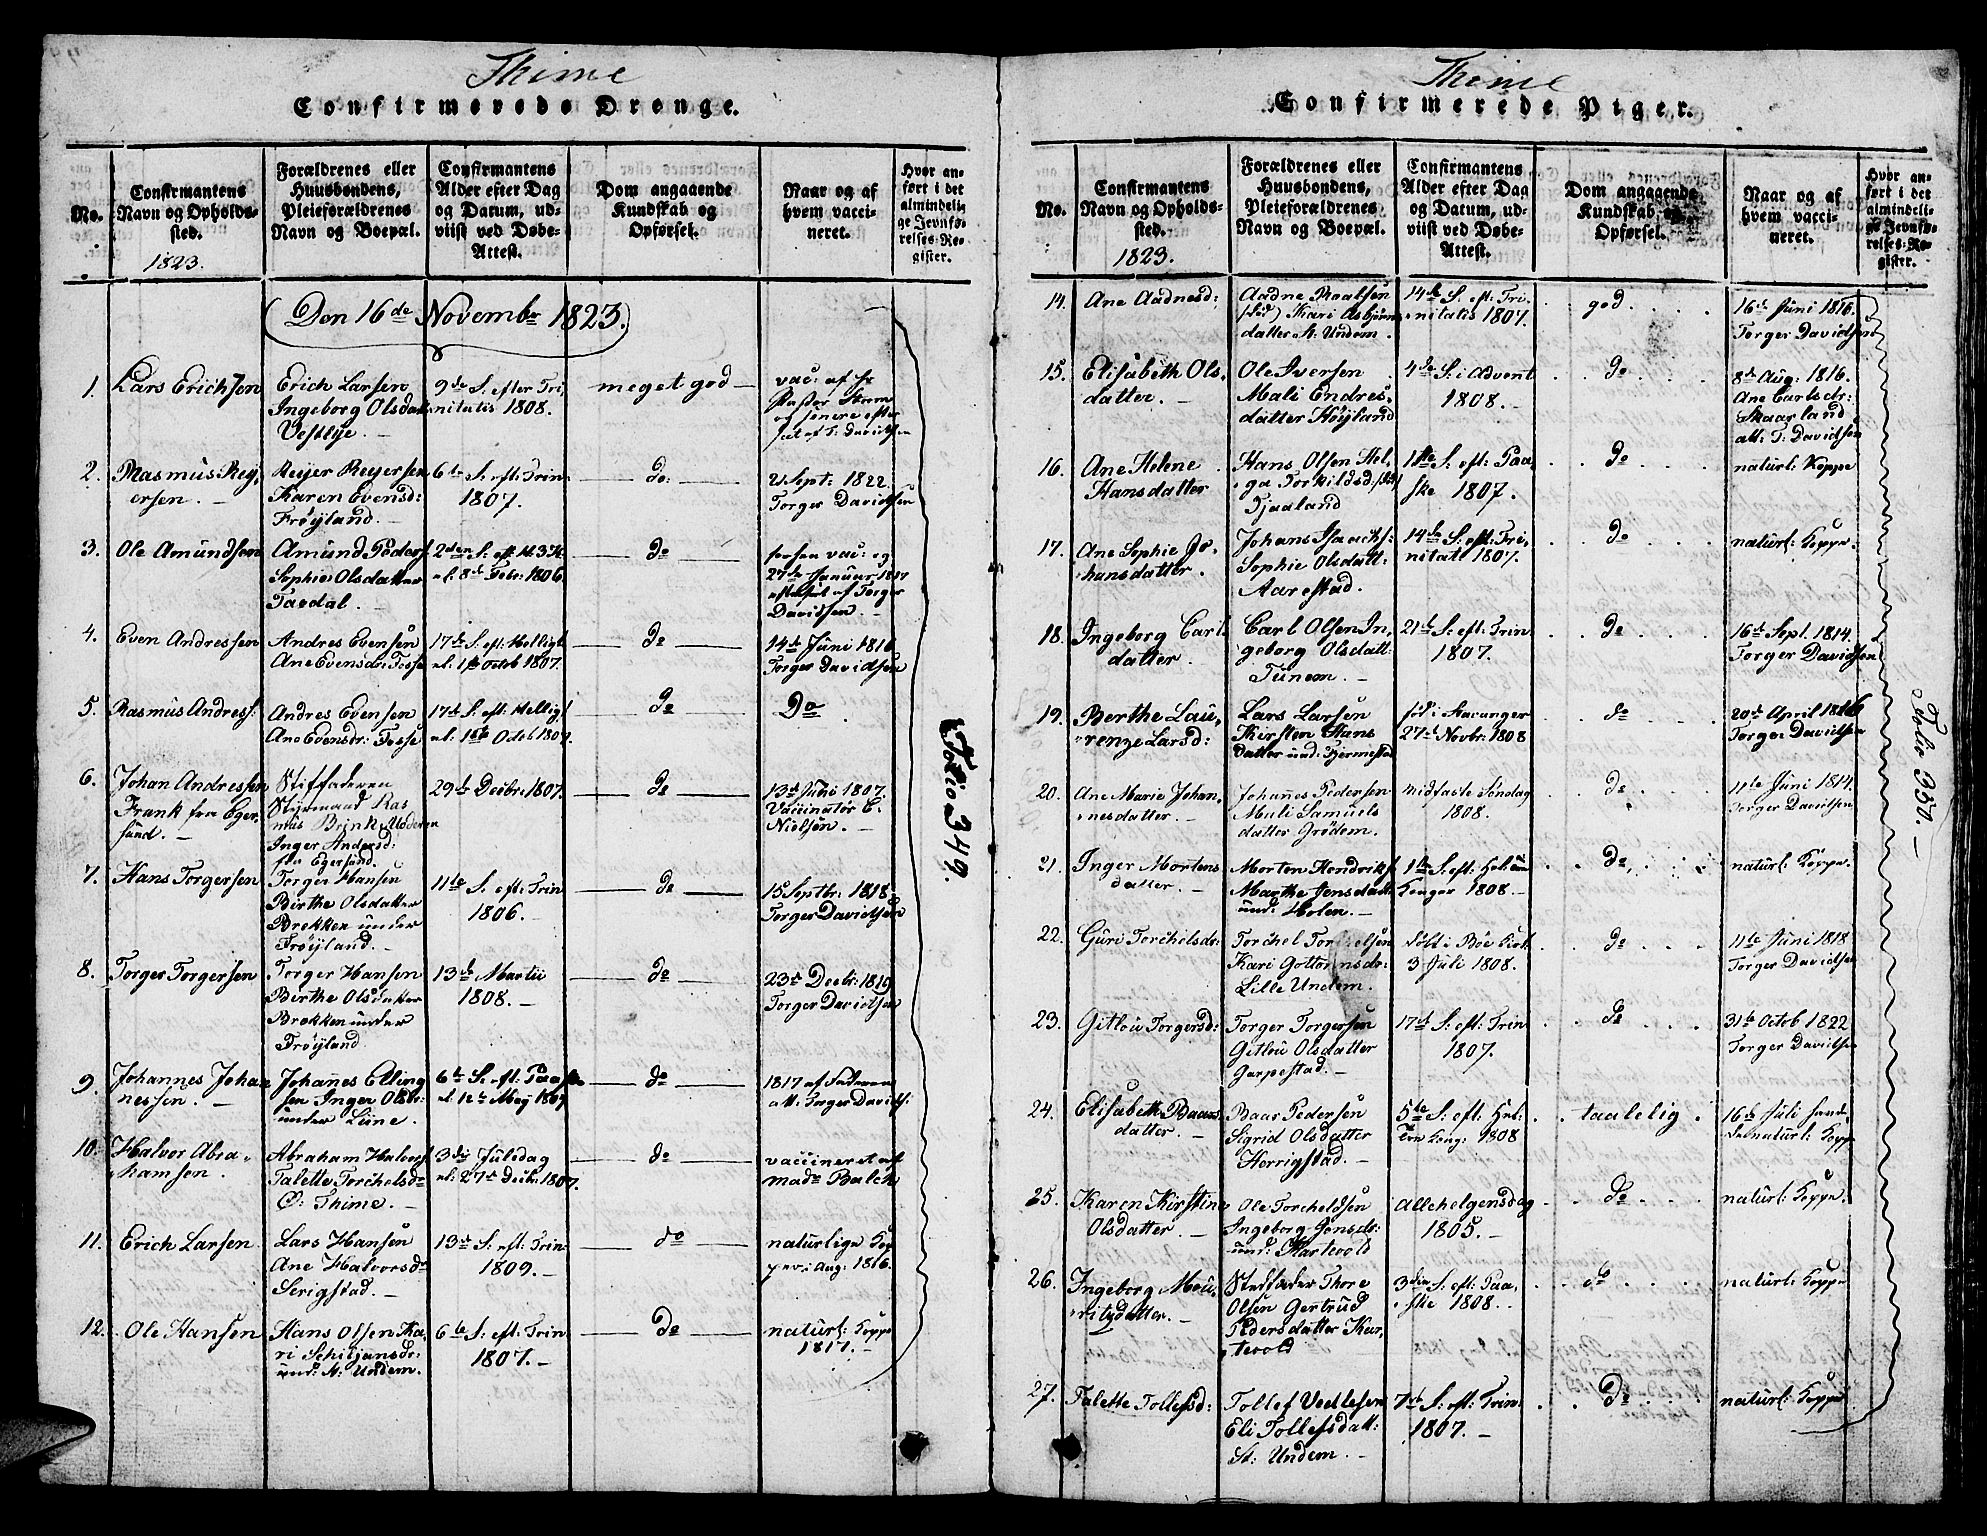 Thime
Confirmerede Drenge.
No.
Confirmantens
Navn og Opholds-
sted.
1823.
Forældrenes eller
Huusbondens,
Pleieforældrenes
Navn og Boepæl.
Confirmantens
Alder efter Dag
og Datum, ud-
viist ved Døbe-
Attest.
Dom angaaende
Kundskab og
Opførsel.
Naar og af
hvem vacci-
neret.
Hvor an-
ført i det
almindeli-
ge Jevnfø-
relses-Re-
gister.
Den 16de November 1823.
1.
Lars Erichsen
Erich Larsen
Ingeborg Olsdatt:
Vestlye.
9de S. efter Tri-
nitatis 1808.
meget god
vac: af
og senere efter
af T: Davidsen
2.
Rasmus Rey-
ersen.
Reyer Reyersen
Karen Evensd:
Frøyland.
6te S. eft: Trin
1807.
do
2 Sept: 1822.
Torger Davidsen
3.
Ole Amundsen
Amund Peders:
Sophie Olsdatter
Tardal.
2den S. eft: H 3 K
el: 8de Febr: 1806.
do
vac: og
27de Januar 1817
af Torger
Davidsen.
4.
Even Andressen
Andres Evensen
Ane Evensdr: Fosse
17de S. eft: Hellig
el: 1ste Octob 1807.
do
14de Juni 1816
Torger Davidsen
5.
Rasmus Andress:
Andres Evensen
Ane Evensdr: Fosse
17de S. eft: Hellig
el: 1ste Octob 1807.
do
Do
6.
Johan Andressen
Frank fra Eger-
sund.
Stiffaderen
Styrmand Ras
mus Brink Moderen
Inger Andersd:
fra Egersund.
29de Decbr: 1807.
do
13de Juni 1807.
Vaccinatør C.
Nielsen.
7.
Hans Torgersen
Torger Hansen
Birthe Olsdatter
Brekken under
Frøyland.
11te S. eft: Trin
1806.
do
15 Septbr: 1818.
Torger Davidsen
8.
Torger Torgersen
Torger Hansen
Birthe Olsdatter
Brekken under
Frøyland.
13de Martii
1808.
do
23de Decbr: 1819
Torger Davidsen
9.
Johannes Johan
nessen.
Johannes Elling
sen Inger Olsdr:
under Lüne.
6te S. eft: Paaske
el: 12te May 1809
do
1817 af Faderen
att: Torger Davids:
10.
Halvor Abra-
hamsen.
Abraham Halvors:
Talette Torchelsdr
Ø: Thime.
3die Juledag
el: 27de Decbr: 1807.
do
vaccineret af
mad: Balch
11.
Erich Larsen
Lars Hansen
Ane Halvorsdr
Serigstad.
13de S. eft: Trin
1809.
do
naturlige Kop
per i Aug: 1816.
12.
Ole Hansen
Hans Olsen Ka-
ri Schiljansdr:
und: N: Undem.
6te S. eft: Trin
1807.
do
naturl: Koppe
1817.
Folio 349.
Thime
Confirmerede Piger.
No.
Confirmantens
Navn og Opholds-
sted.
1823.
Forældrenes eller
Huusbondens,
Pleieforældrenes
Navn og Boepæl.
Confirmantens
Alder efter Dag
og Datum, ud-
viist ved Døbe-
Attest.
Dom angaaende
Kundskab og
Opførsel.
Naar og af
hvem vacci-
neret.
Hvor an-
ført i det
almindeli-
ge Jevnfø-
relses-Re-
gister.
14.
Ane Aadnesd:
Aadne Roalsen
Kari Asbjørns-
datter N: Undem.
14de S. eft: Tri-
nitatis 1807.
god.
16de Juni 1816.
Torger Davidsen
15.
Elisabeth Ols-
datter.
Ole Iversen
Mali Endres-
datter Høyland
4de S: i Advent
1808.
do
8de Aug: 1816.
Ane Carlsdr:
Skaarland
att: T: Davidsen
16.
Ane Helene
Hansdatter
Hans Olsen Hel-
ga Torkildsd:
Tjaaland
1ste S: eft: Paa-
ske 1807.
do
naturl: Koppe
17.
Ane Sophie Jo-
hansdatter.
Johans Isaachs:
Sophie Olsdatt:
Aarestad.
14de S: eft: Tri-
nitati 1807.
do
naturl: Koppe.
18.
Ingeborg Carl
datter.
Carl Olsen In-
geborg Olsdatt:
Tunem.
21de S: eft: Trin
1807.
do
16de Sept. 1814.
Torger Davidsen
19.
Berthe Lau-
renze Larsd:
Lars Larsen
Kirsten Hans
datter und: Hjermestad
fød i Stavanger
27de Novbr: 1808
do
20de April 1816
Torger Davidsen
20.
Ane Marie Johan-
nesdatter.
Johanes Pedersen
Mali Samuels
datter Grødem.
Midfaste Søndag
1808.
do
11te Juni 1814.
Torger Davidsen
21.
Inger Mortens
datter.
Morten Hendriks:
Marthe Jensdatt:
und: Holen.
1ste S. eft: Hel: tre
Konger 1808.
do
naturl: Koppe.
22.
Guri Torchelsdr:
Torchel Torchelsen
Kari Gottormsdr:
Lille Undem.
døbt i Bøe Kirk:
3 Juli 1808.
do
11te Juni 1818
Torger Davidsen
23.
Gitlou Torgersd:
Torger Torgersen
Gitlou Olsdatter
Garpestad.
17de S: eft: Trin
1807.
do
31te Octob 1822
Torger Davidsen
24.
Elisabeth Baars
datter.
Baar Pedersen
Sigrid Olsdatter
Horrigstad.
5te S: eft: Hel:
Tre Kong: 1808
taalelig
16de Juli
naturl: Kopp
25.
Karen Kirstine
Olsdatter.
Ole Torcheldsen
Ingeborg Jonsdr:
und: Kartevold
Allehelgensdag
1805.
do
naturl: Koppe.
26.
Ingeborg Mou-
ritzdatter.
Stiffader Thore
Olsen Gertrud
Pedersdatter Kar-
tevold
3die S. eft: Paa-
ske 1808.
do
naturl: Koppe
27.
Talette Tollefsd:
Tollef Vedlesen
Eli Tollefsdatt:
St: Undem.
7de S. eft: Trin:
1807.
do
naturl: Koppe
Folio 350.